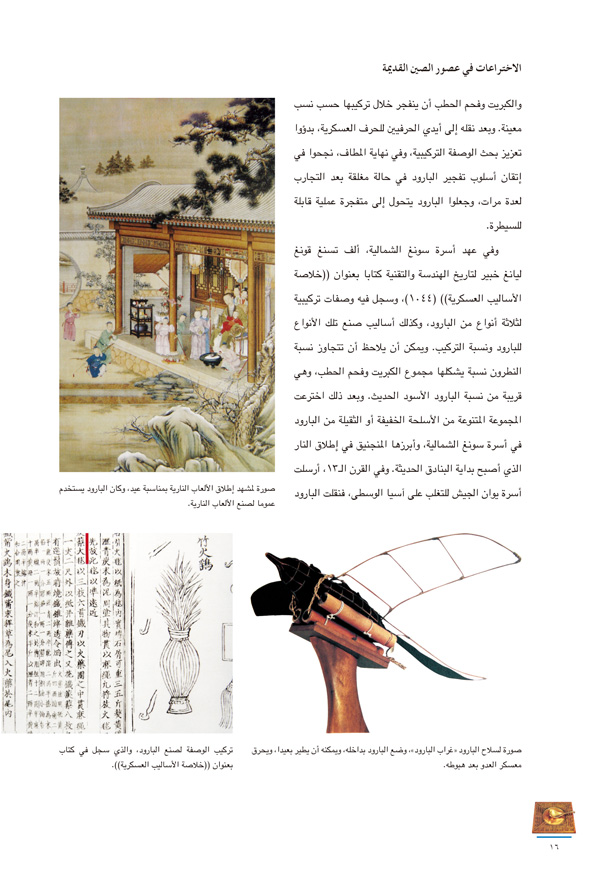 الاختراعات في عصور الصين القديمة
والكبريت وفحم الحطب أن ينفجر خلال تركيبها حسب نسب
معينة. وبعد نقله إلى أيدي الحرفيين للحرف العسكرية، بدؤوا
تعزيز بحث الوصفة التركيبية، وفي نهاية المطاف، نجحوا في
إتقان أسلوب تفجير البارود في حالة مغلقة بعد التجارب
لعدة مرات، وجعلوا البارود يتحول إلى متفجرة عملية قابلة
للسيطرة.
وفي عهد أسرة سونغ الشمالية، ألف تسنغ قونغ
ليانغ خبير لتاريخ الهندسة والتقنية كتابا بعنوان ((خلاصة
الأساليب العسكرية)) (١٠٤٤)، وسجل فيه وصفات تركيبية
لثلاثة أنواع من البارود، وكذلك أساليب صنع تلك الأنواع
للبارود ونسبة التركيب. ويمكن أن يلاحظ أن تتجاوز نسبة
النطرون نسبة يشكلها مجموع الكبريت وفحم الحطب، وهي
قريبة من نسبة البارود الأسود الحديث. وبعد ذلك اخترعت
المجموعة المتنوعة من الأسلحة الخفيفة أو الثقيلة من البارود
في أسرة سونغ الشمالية، وأبرزها المنجنيق في إطلاق النار
الذي أصبح بداية البنادق الحديثة. وفي القرن الـ١٣، أرسلت
أسرة يوان الجيش للتغلب على أسيا الوسطى، فنقلت البارود
صورة لمشهد إطلاق الألعاب النارية بمناسبة عيد، وكان البارود يستخدم
عموما لصنع الألعاب النارية.
竹火鷂
صورة لسلاح البارود «غراب البارود»، وضع البارود بداخله، ويمكنه أن يطير بعيدا، ويحرق
معسكر العدو بعد هبوطه.
تركيب الوصفة لصنع البارود، والذي سجل في كتاب
بعنوان ((خلاصة الأساليب العسكرية)).
١٦